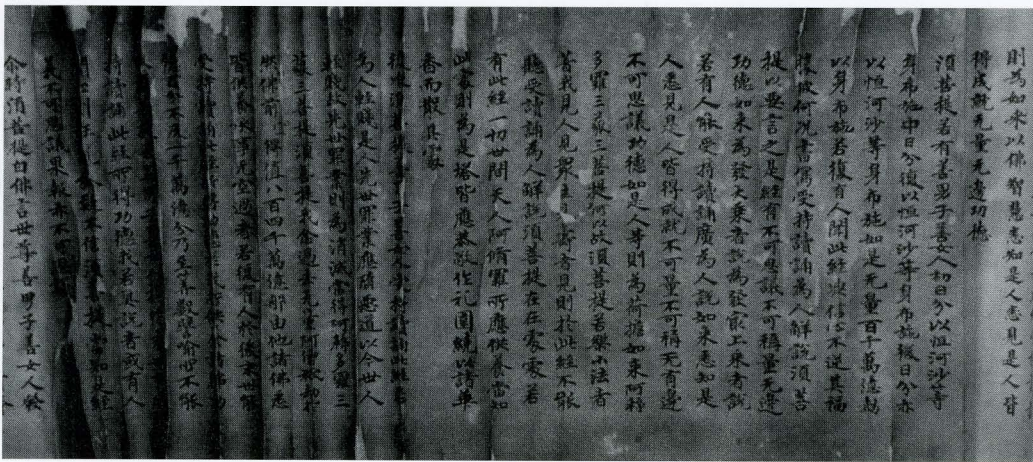 則為如来以佛智慧悉知是人悉見是人皆
得成就无量无邊功德
須菩提若有善男子善女人初日分以恒河沙等
身布施中日分復以恒河沙等身布施後日分亦
以恒河沙等身布施如是无量百千萬億劫
以身布施若復有人聞此經典信心不逆其福
勝彼何況書寫受持讀誦為人解說須菩
提以要言之是經有不可思議不可稱量无邊
功德如来為發大乘者說為發冣上乘者說
若有人能受持讀誦廣為人說如来悉知是
人悉見是人皆得成就不可量不可稱无有邊
不可思議功德如是人等則為荷擔如来阿耨
多羅三藐三菩提何以故須菩提若樂小法者
著我見人見眾生見壽者見則於此經不能
聽受讀誦為人解說須菩提在在處處若
有此經一切世間天人阿脩羅所應供養當知
此處則為是塔皆應恭敬作礼圍繞以諸華
香而散其處
復次須菩提善男子善女人受持讀誦此經若
為人輕賤是人先世罪業應墮惡道以今世人
輕賤故先世罪業則為消滅當得阿耨多羅三
藐三菩提須菩提我念過去无量阿僧祇劫於
然佛前得值八百四千萬億那由他諸佛悉
皆供養承事无空過者若復有人於後末世能
受持讀誦此經所得功德於我所供養諸佛功
一千萬億分乃至筭數譬喻所不能
持讀誦此經所得功德我若具說者或有人
狐疑不信須菩提當知是經
義不可思議果報亦不可思
尒時須菩提白佛言世尊善男子善女人發